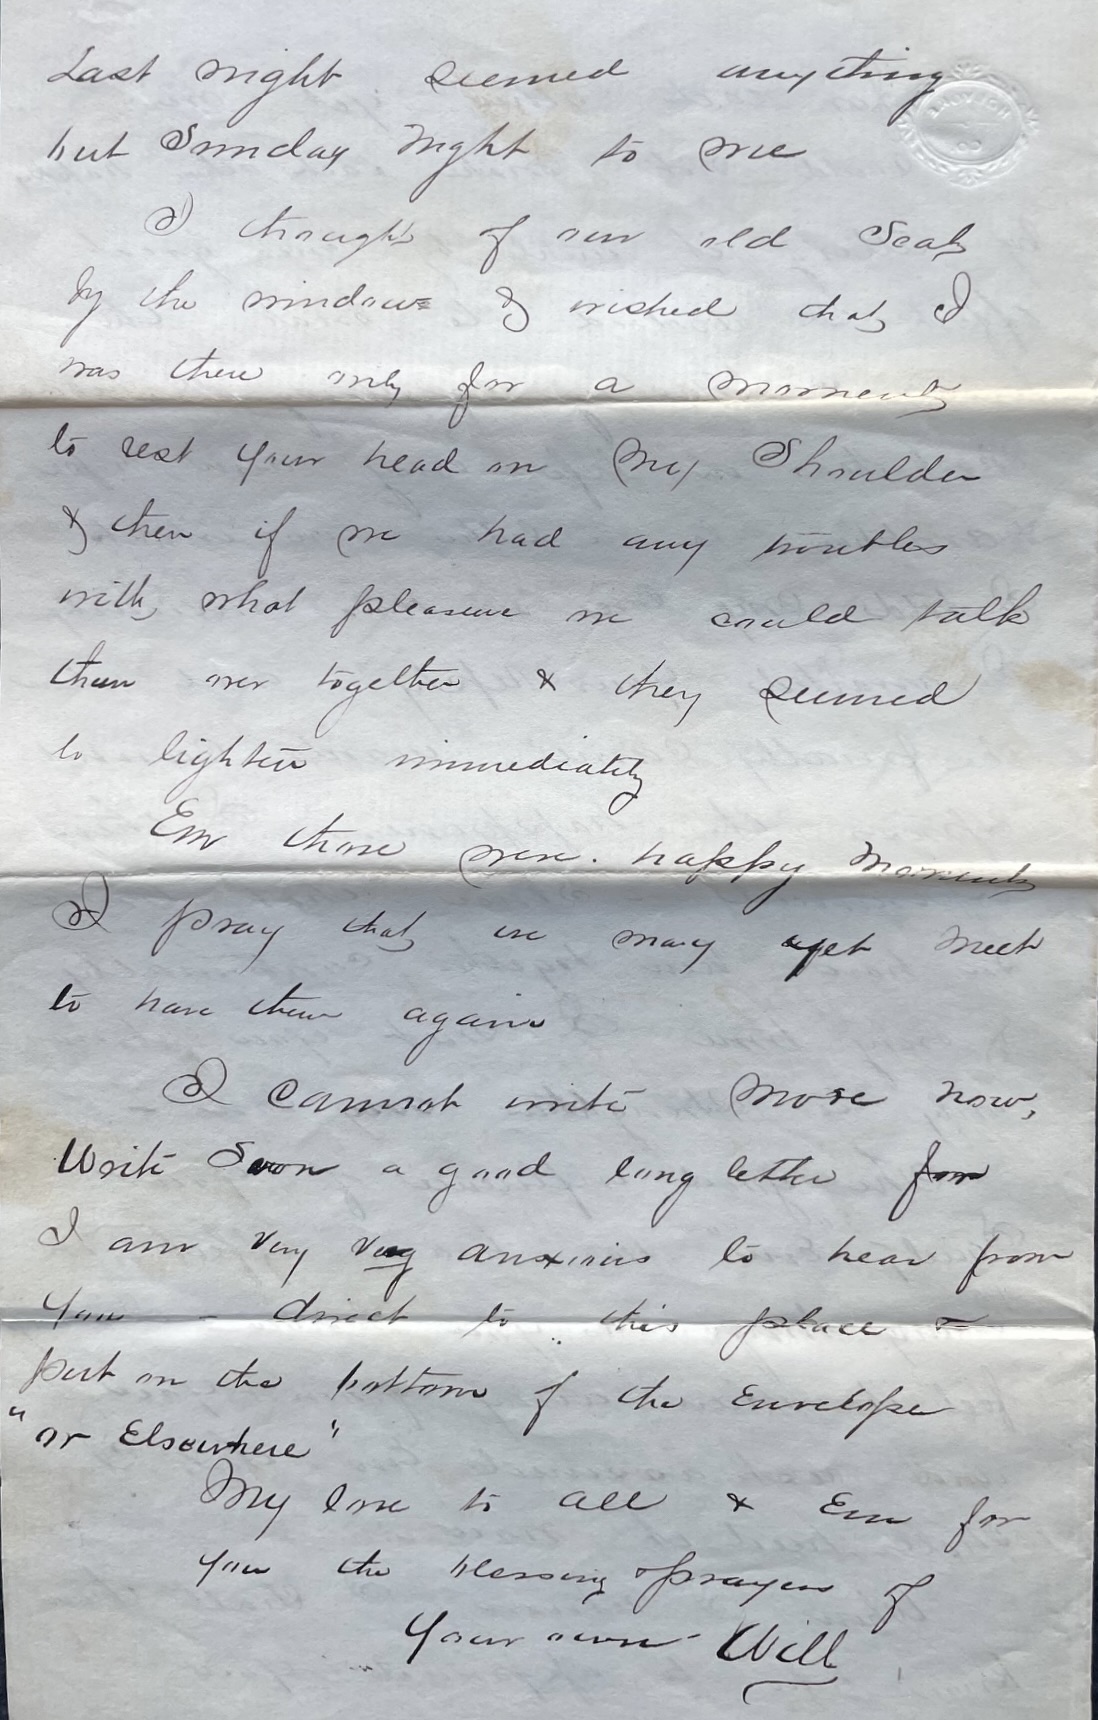 Last night seemed anything
but Sunday Night to me
I thought of our old Seat
by the window & wished that I
was there only for a moment
to rest your head on My Shoulder
& then if we had any troubles
with what pleasure we could talk
them over together & they seemed
to lighten immediately
Em those were happy Moments
I pray that we may yet Meet
to have them again
I Cannot write More now,
Write Soon a good long letter for
I am very very anxious to hear from
you - direct to this place &
put on the bottom of the Envelope
"or Elsewhere"
My love to all & Em for
you the blessing & prayers of
Your own Will